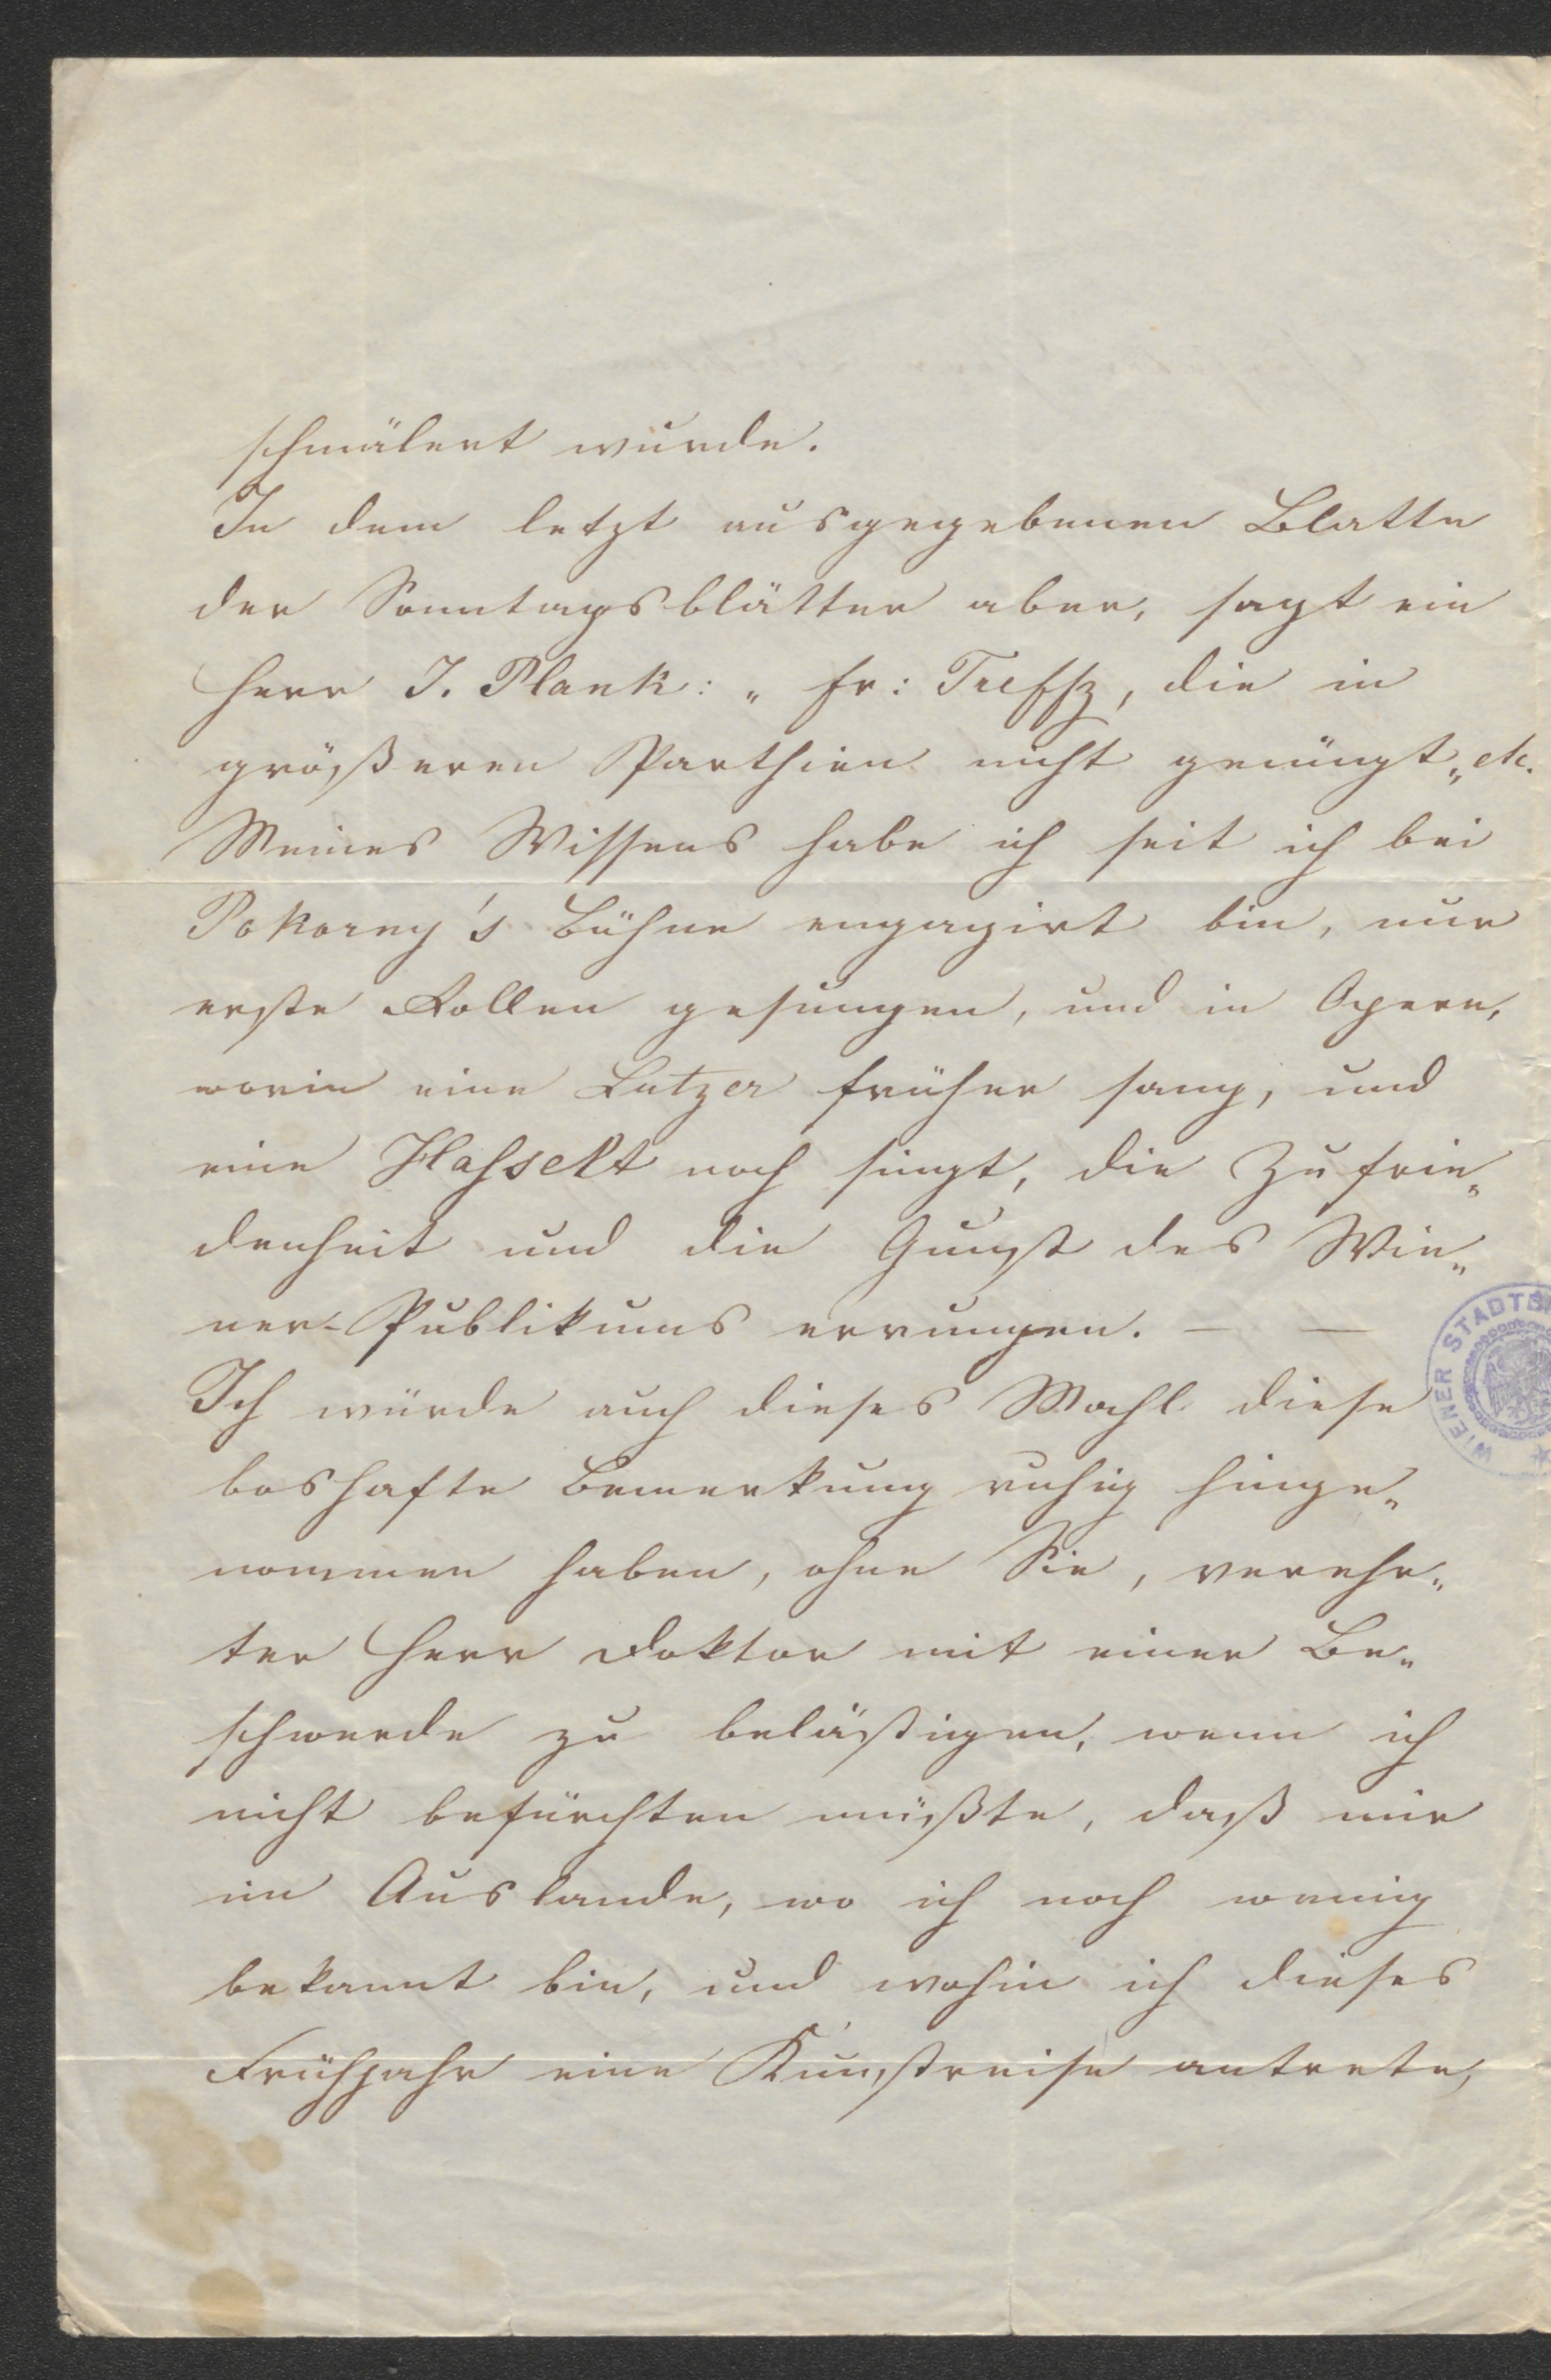 schmälert wurde.
In dem letzt ausgegebenen Blatte
der Sonntagsblätter aber, sagt ein
Herr J. Plank: „ Fr: Treffz, die in
größeren Parthien nicht genügt„ etc.
Meines Wissens habe ich seit ich bei
Pokorny's Bühne engagirt bin, nur
erste Rollen gesungen, und in Opern,
worin eine Lutzer früher sang, und
eine Hasselt noch singt, die Zufrie„
denheit und die Gunst des Wie„
ner-Publikums errungen. — —
Ich würde auch dieses Mahl diese
boshafte Bemerkung ruhig hinge„
nommen haben, ohne Sie, verehr„
ter Herr Doktor mit einer Be„
schwerde zu belästigen, wenn ich
nicht befürchten müßte, daß mir
im Auslande, wo ich noch wenig
bekannt bin, und wohin ich dieses
Frühjahr eine Kunstreise antrete,
WIENER STADTB